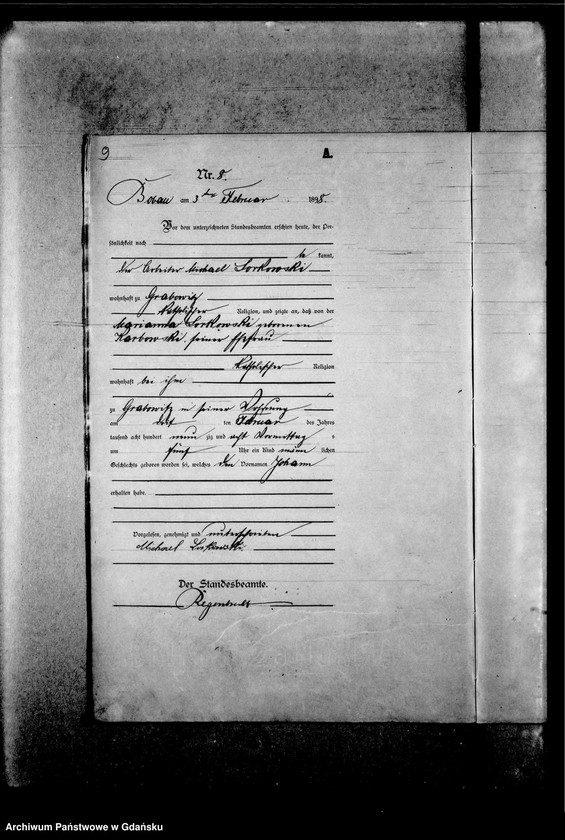 9
A.
Nr. 8.
Bobau am 3ten Februar 1898.
Vor dem unterzeichneten Standesbeamten erschien heute, der Per-
sönlichkeit nach
kannt,
der Arbeiter Michael Lorkowski
wohnhaft zu Grabowitz
katholischer Religion, und zeigte an, daß von der
Marianna Lorkowski geborenen
Karbowski seiner Ehefrau
katholischer Religion
wohnhaft bei ihm
zu Grabowitz in seiner Wohnung
am ten Februar des Jahres
tausend acht hundert neun zig und acht Vormittag s
um fünf Uhr ein Kind männ lichen
Geschlechts geboren worden sei, welches den Vornamen Johann
erhalten habe.
Vorgelesen, genehmigt und unterschrieben
Michael Lorkowski
Der Standesbeamte.
Archiwum Państwowe w Gdańsku